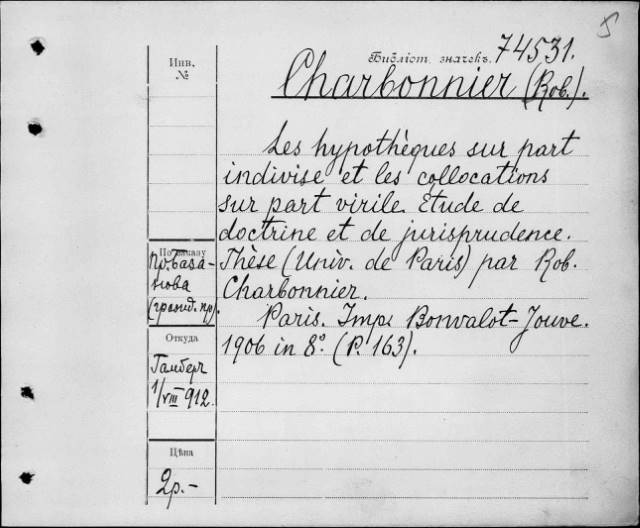 5
Библіот. значекъ. 74531.
Инв.
№
Charbonnier (Rob.).
Les hypothèques sur part
indivise et les collocations
sur part virile. Etude de
doctrine et de jurisprudence.
Thèse (Univ. de Paris) par Rob.
Charbonnier.
Paris. Imp. Bonvalot-Jouve.
1906 in 8º. (P. 163).
По заказу
пр. База-
нова
(гражд. пр).
Откуда
Гамбера
1/VIII 912.
Цѣна
2р.-